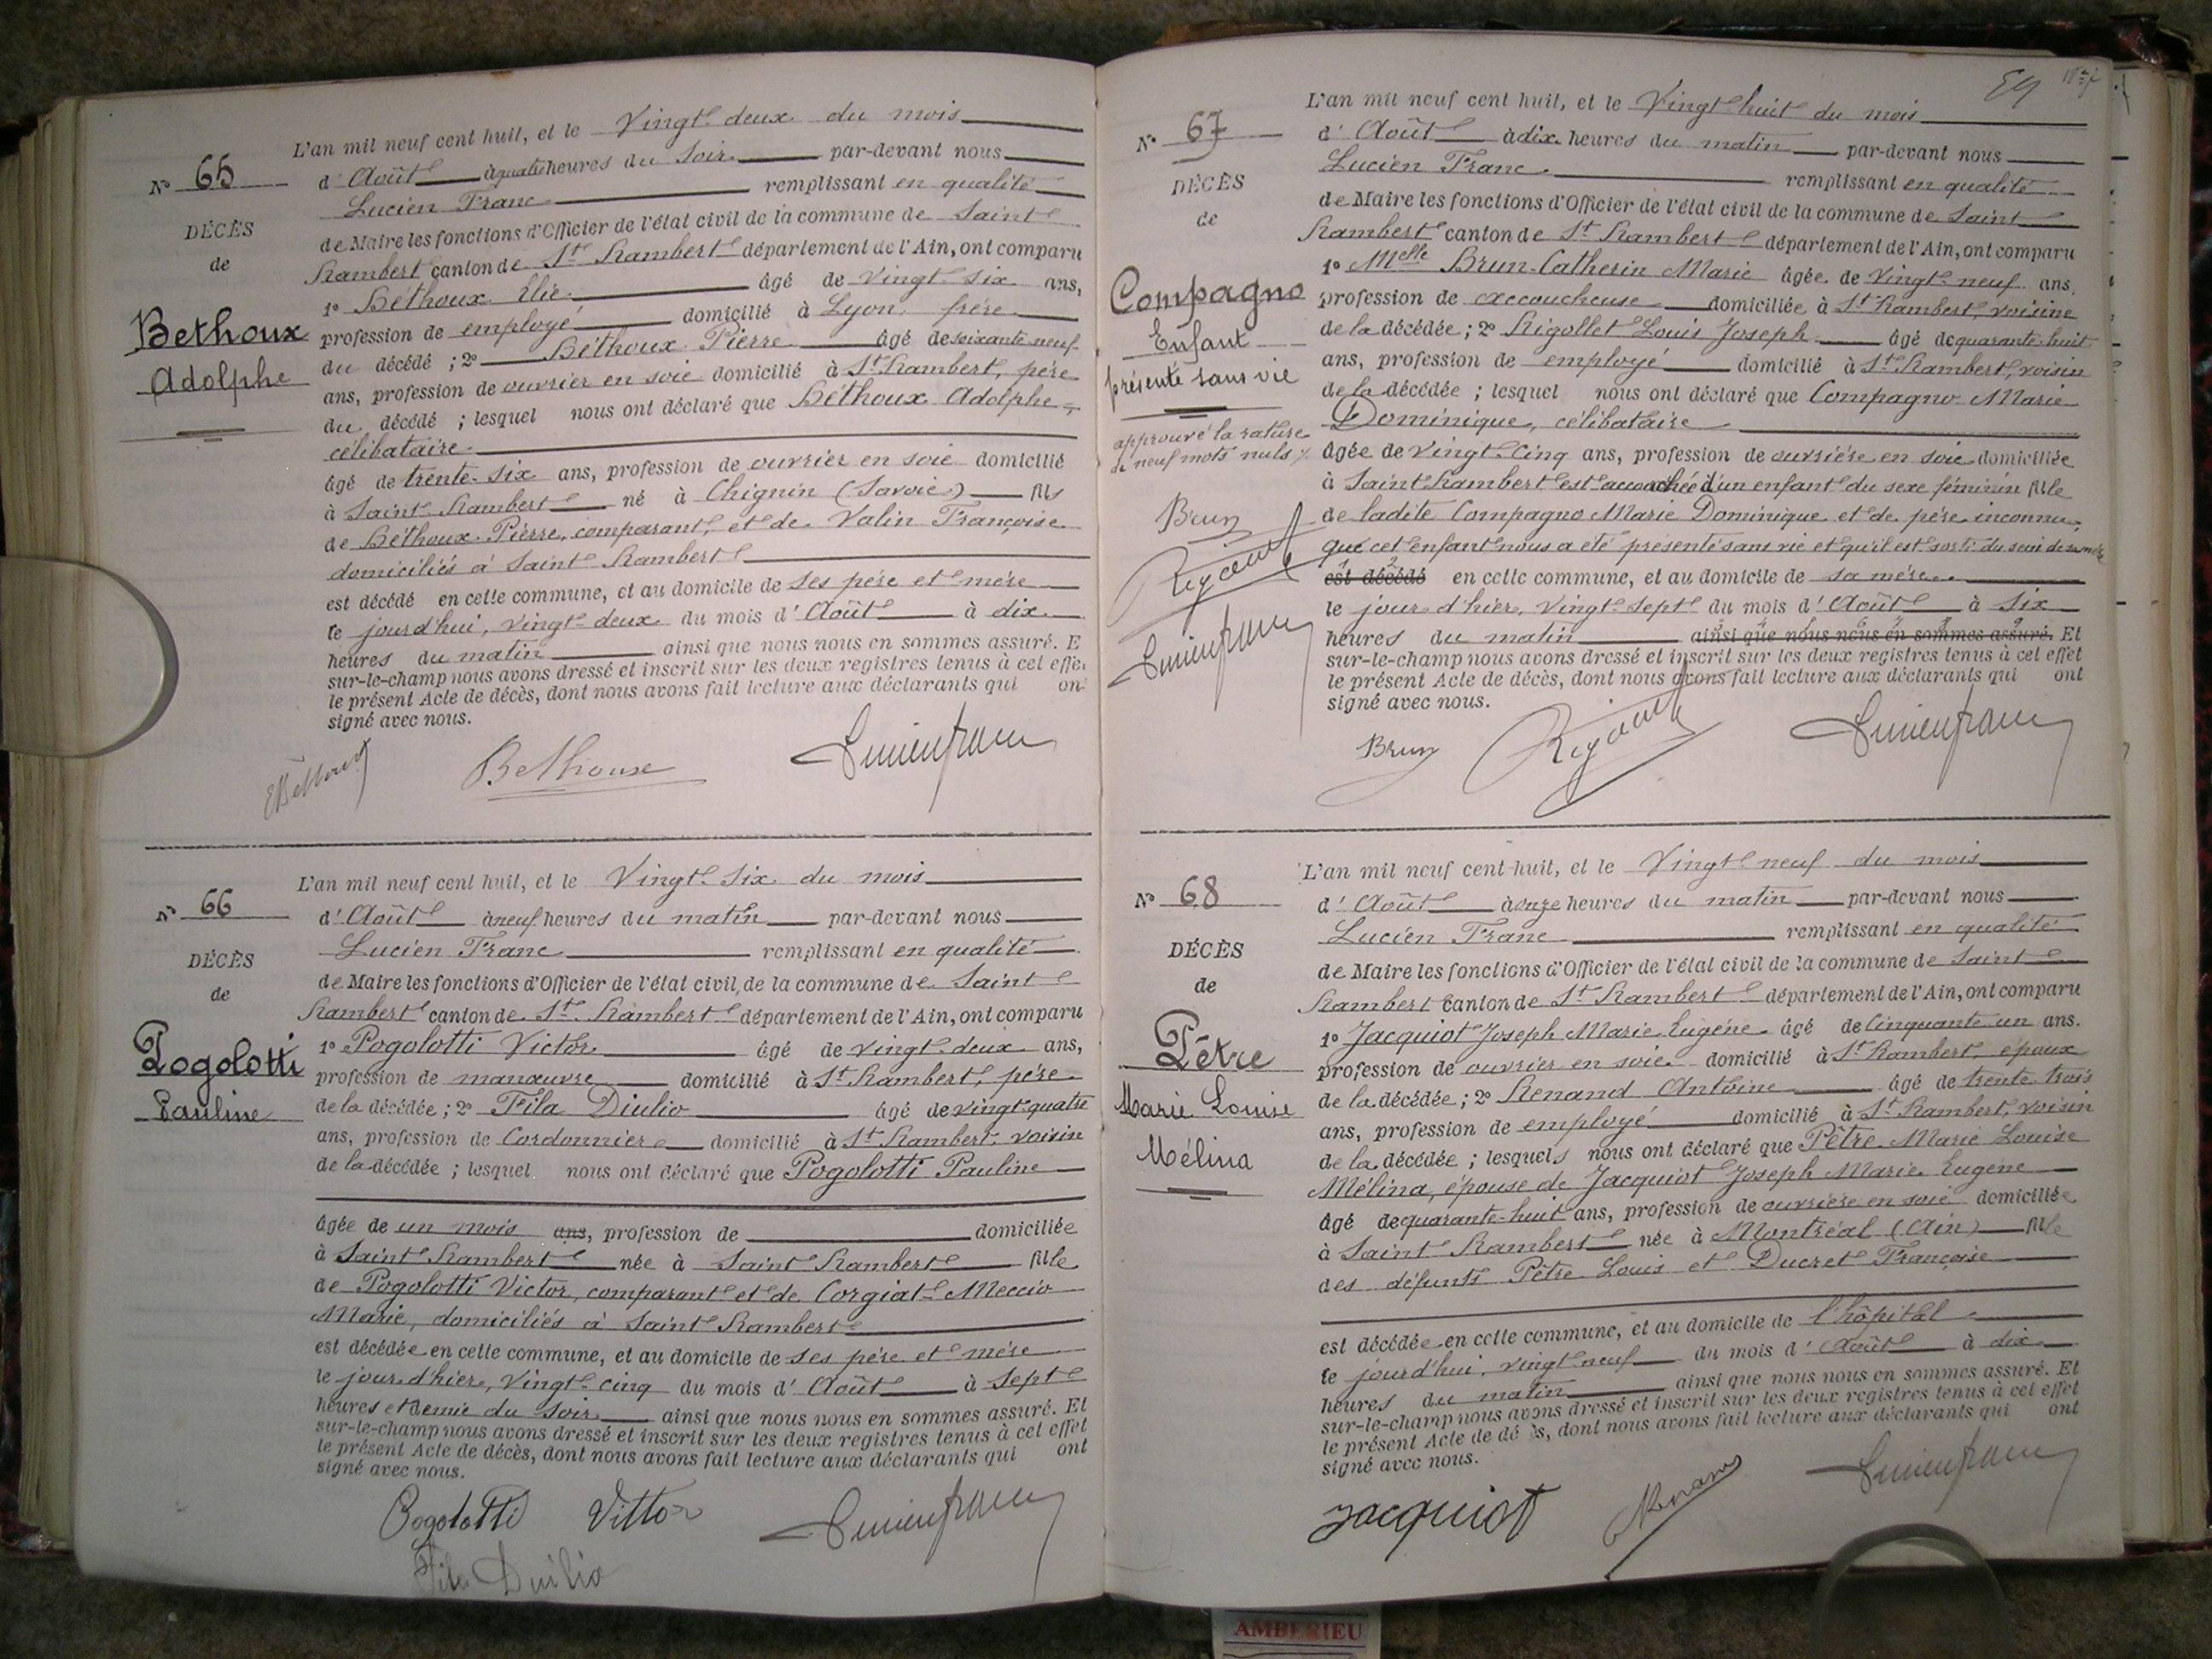 N° 65
DÉCÈS
de
Bethoux
Adolphe
L'an mil neuf cent huit, et le Vingt-deux du mois
d'Août à quatre heures du soir par-devant nous
Lucien Franc remplissant en qualité
de Maire les fonctions d'Officier de l'état civil de la commune de Saint
Rambert canton de St Rambert département de l'Ain, ont comparu
1° Béthoux Élie âgé de vingt-six ans,
profession de employé domicilié à Lyon, frère
du décédé ; 2° Béthoux Pierre âgé de soixante-neuf
ans, profession de ouvrier en soie domicilié à St Rambert, père
du décédé ; lesquel nous ont déclaré que Béthoux Adolphe,
célibataire
âgé de trente-six ans, profession de ouvrier en soie domicilié
à Saint Rambert né à Chignin (Savoie) fils
de Béthoux Pierre, comparant, et de Valin Françoise
domiciliés à Saint Rambert
est décédé en cette commune, et au domicile de ses père et mère
le jourd'hui, vingt-deux du mois d'Août à dix
heures du matin ainsi que nous nous en sommes assuré. E
sur-le-champ nous avons dressé et inscrit sur les deux registres tenus à cet effe
le présent Acte de décès, dont nous avons fait lecture aux déclarants qui on
signé avec nous.
EBéthoux Bethoux Lucien franc
N° 66
DÉCÈS
de
Pogolotti
Pauline
L'an mil neuf cent huit, et le Vingt-six du mois
d'Août à neuf heures du matin par-devant nous
Lucien Franc remplissant en qualité
de Maire les fonctions d'Officier de l'état civil de la commune de Saint
Rambert canton de St Rambert département de l'Ain, ont comparu
1° Pogolotti Victor âgé de vingt-deux ans,
profession de manœuvre domicilié à St Rambert, père
de la décédée ; 2° Fila Diulio âgé de vingt-quatre
ans, profession de Cordonnier domicilié à St Rambert, voisin
de la décédée ; lesquel nous ont déclaré que Pogolotti Pauline
âgée de un mois ans, profession de domiciliée
à Saint Rambert née à Saint Rambert fille
de Pogolotti Victor, comparant et de Corgiat-Meccio
Marie, domiciliés à Saint Rambert
est décédée en cette commune, et au domicile de ses père et mère
le jour d'hier, vingt-cinq du mois d'Août à sept
heures et demie du soir ainsi que nous nous en sommes assuré. Et
sur-le-champ nous avons dressé et inscrit sur les deux registres tenus à cet effet
le présent Acte de décès, dont nous avons fait lecture aux déclarants qui ont
signé avec nous.
Pogolotti Vittor Lucien franc
Fila Duilio
N° 67
DÉCÈS
de
Compagno
Enfant
présenté sans vie
approuvé la rature
de neuf mots nuls
Brun
Rigollet
Lucien franc
L'an mil neuf cent huit, et le Vingt-huit du mois
d'Août à dix heures du matin par-devant nous
Lucien Franc remplissant en qualité
de Maire les fonctions d'Officier de l'état civil de la commune de Saint
Rambert canton de St Rambert département de l'Ain, ont comparu
1° Melle Brun-Catherin Marie âgée de vingt-neuf ans,
profession de accoucheuse domiciliée à St Rambert, voisine
de la décédée ; 2° Rigollet Louis Joseph âgé de quarante-huit
ans, profession de employé domicilié à St Rambert, voisin
de la décédée ; lesquel nous ont déclaré que Compagno Marie
Dominique, célibataire
âgée de vingt-cinq ans, profession de ouvrière en soie domiciliée
à Saint Rambert est accouchée d'un enfant du sexe féminin fille
de ladite Compagno Marie Dominique et de père inconnu,
que cet enfant nous a été présenté sans vie et qu'il est sorti du sein de sa mère
est décédé en cette commune, et au domicile de sa mère
le jour d'hier, vingt-sept du mois d'Août à six
heures du matin ainsi que nous nous en sommes assuré. Et
sur-le-champ nous avons dressé et inscrit sur les deux registres tenus à cet effet
le présent Acte de décès, dont nous avons fait lecture aux déclarants qui ont
signé avec nous.
Brun Rigollet Lucien franc
N° 68
DÉCÈS
de
Pêtre
Marie Louise
Mélina
L'an mil neuf cent huit, et le Vingt-neuf du mois
d'Août à onze heures du matin par-devant nous
Lucien Franc remplissant en qualité
de Maire les fonctions d'Officier de l'état civil de la commune de Saint
Rambert canton de St Rambert département de l'Ain, ont comparu
1° Jacquiot Joseph Marie Eugène âgé de cinquante-un ans.
profession de ouvrier en soie domicilié à St Rambert, époux
de la décédée ; 2° Renand Antoine âgé de trente-trois
ans, profession de employé domicilié à St Rambert, voisin
de la décédée ; lesquels nous ont déclaré que Pêtre Marie Louise
Mélina, épouse de Jacquiot Joseph Marie Eugène
âgé de quarante-huit ans, profession de ouvrière en soie domiciliée
à Saint Rambert née à Montréal (Ain) fille
des défunts Pêtre Louis et Ducret Françoise
est décédée en cette commune, et au domicile de l'hôpital
le jourd'hui, vingt-neuf du mois d'Août à dix
heures du matin ainsi que nous nous en sommes assuré. Et
sur-le-champ nous avons dressé et inscrit sur les deux registres tenus à cet effet
le présent Acte de décès, dont nous avons fait lecture aux déclarants qui ont
signé avec nous.
Jacquiot Renand Lucien franc
AMBERIEU